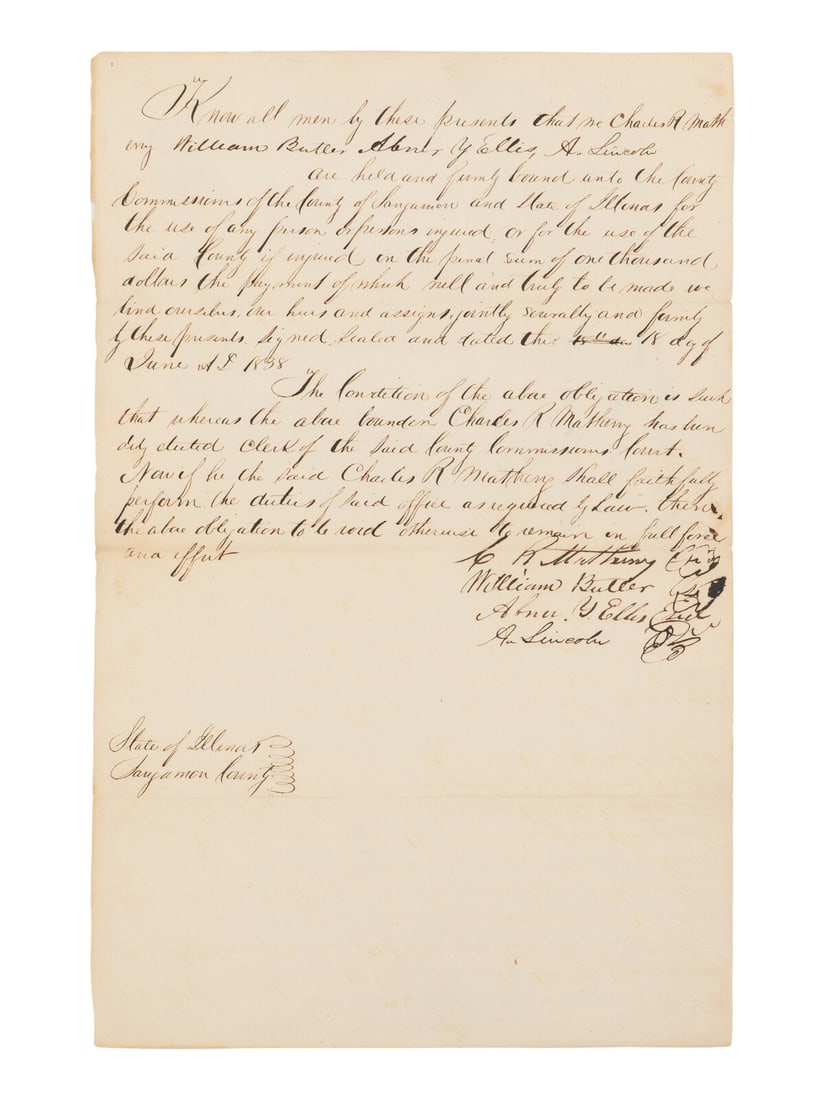 Know all men by these presents that we Charles R Math
eny William Butler Abner Y Ellis A. Lincoln
are held and firmly bound unto the County
Commissions of the County of Sangamon and State of Illinois for
the use of any person or persons injured, or for the use of the
said County if injured in the penal sum of one thousand
dollars the payment of which well and truly to be made we
bind ourselves, our heirs and assigns, jointly severally and firmly
by these presents, signed, sealed and dated this 18 day of
June AD 1838
The Condition of the above obligation is such
that whereas the above bounden Charles R Matheny has been
duly elected Clerk of the said County Commissioners Court.
Now if he the said Charles R Matheny shall faithfully
perform the duties of said office as required by Law. then
the above obligation to be void otherwise to remain in full force
and effect
C R Matheny Seal
William Butler Seal
Abner. Y Ellis Seal
A. Lincoln
State of Illinois
Sangamon County